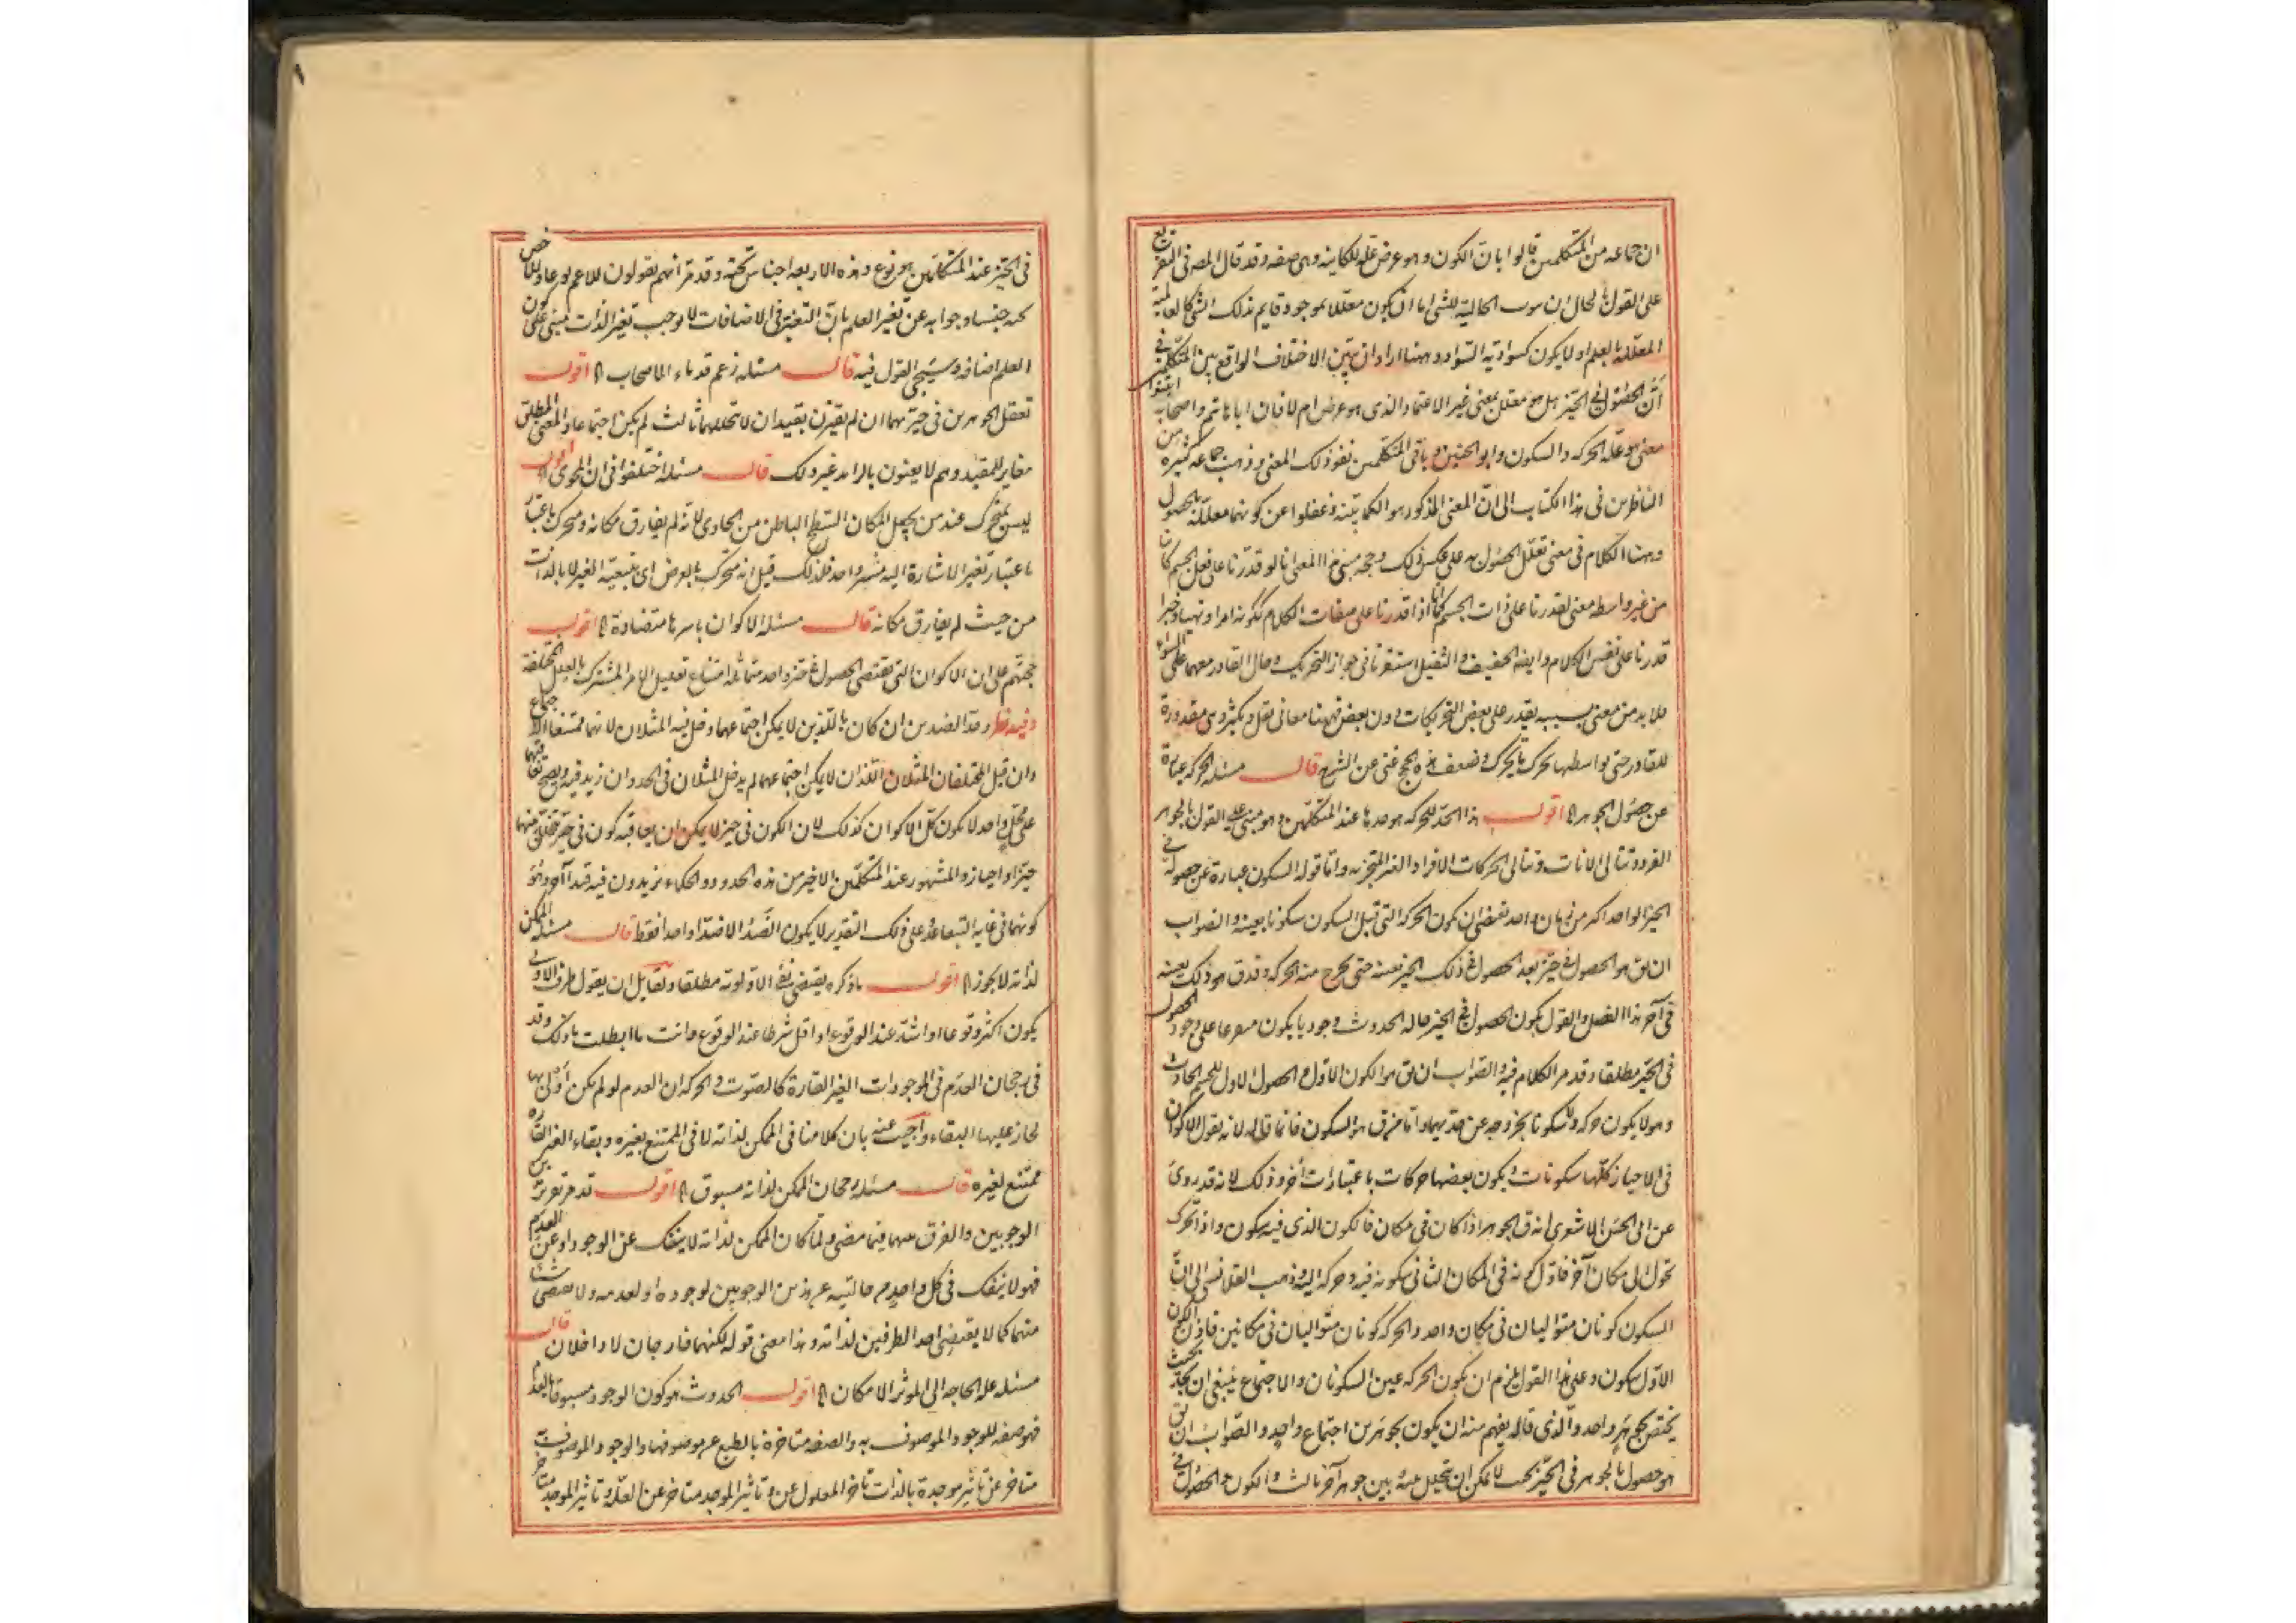 ان جماعه من المتكلمين قالوا بان الكون وهو عرض علة للكاينه وهى صفه وقد قال المصه فى التفريع
على القول بالحال ان موت الحالية للشى اما ان يكون معللا بموجود قايم بذلك الشى كالعالمية
المعللة بالعلم او لا يكون كسوادية السواد وههنا اراد ان يبين الاختلاف الواقع بين المتكلمين فى
ان الحصول فى الحيز هل هو معلل بمعنى غير الاعتماد الذى هو عرض ام لا فان ابا هاشم واصحابه اثبتوا
معنى هو علة الحركه والسكون وابو الحسين وباقى المتكلمين نفوا ذلك المعنى وذهب جماعه كثيره من
الناظرين فى هذا الكتاب الى ان المعنى المذكور هو الكاينية وغفلوا عن كونها معللة بالحصول
وههنا الكلام فى معنى تعلل الحصول به على عكس ذلك وحجه مثبتى هذا المعنى انا لو قدرنا على فعل الجسم كاينا
من غير واسطه معنى لقدرنا على ذات الجسم كما انا اذا قدرنا على صفات الكلام ككونه امرا ونهيا وخبرا
قدرنا على نفس الكلام وايضا الخفيف والثقيل استقرتا فى جواز التحريك وحال القادر معهما على السواء
فلا بد من معنى بسببه يقدر على بعض التحريكات دون بعض فههنا معانى تقل وتكثر وهى مقدورة
للقادر حتى بواسطها تحرك ما يحرك وضعف هذه الحجج غنى عن الشرح قال مسئله الحركه عبارة
عن حصول الجوهر الخ اقول هذا الحد للحركه هو حدها عند المتكلمين وهو مبنى على القول بالجوهر
الفرد وتتالى الانات وتتالى الحركات الافراد الغير المتجزيه واما قوله السكون عبارة عن حصوله فى
الحيز الواحد اكثر من زمان واحد يقتضى ان تكون الحركه التى قبل السكون سكونا بعينه والصواب
ان يق هو الحصول فى حيز بعد الحصول فى ذلك الحيز بعينه حتى يخرج منه الحركه وقد ق هو ذلك بعينه
فى آخر هذا الفصل والقول بكون الحصول فى الحيز حاله الحدوث وجوديا يكون مفرعا على وجود الحصول
فى الحيز مطلقا وقد مر الكلام فيه والصواب ان يق هو الكون الاول والحصول الاول للجسم الحادث
وهو لا يكون حركه ولا سكونا بخروجه عن حديهما واما من ق هو السكون فانما قاله لانه يقول الاكوان
فى الاحياز كلها سكونات ويكون بعضها حركات باعتبارات أخر وذلك لانه قد روى
عن ابى الحسن الاشعرى انه ق الجوهر اذا كان فى مكان فالكون الذى فيه سكون واذا تحرك
تحول الى مكان آخر فاول كونه فى المكان الثانى سكونه فيه وحركه اليه وذهب القلانسى الى ان
السكون كونان متواليان فى مكان واحد والحركه كونان متواليان فى مكانين فاذن الكون
الاول سكون وعلى هذا القول يلزم ان يكون الحركه عين السكونات والاجتماع ينبغى ان يحد بحيث
يختص بجوهر واحد والذى قاله يفهم منه ان يكون بجوهرين اجتماع واحد والصواب ان يق
هو حصول الجوهر فى الحيز بحيث لا يمكن ان يتخلل بينه وبين جوهر آخر ثالث والكون هو الحصول فى
فى الحيز عند المتكلمين هو نوع وهذه الاربعه اجناس تحته وقد مر انهم يقولون للاعم نوعا وللاخص
تحته جنسا وجوابه عن تغير العلم بان التغير فى الاضافات لا يوجب تغير الذات مبنى على كون
العلم اضافه وسيجى القول فيه قال مسئله زعم قدماء الاصحاب الخ اقول
تعقل الجوهرين فى حيزيهما ان لم يقترن بقيد ان لا يتخللهما ثالث لم يكن اجتماعا والمعنى المطلق
مغاير للمقيد وهم لا يعنون بالزايد غير ذلك قال مسئله اختلفوا فى ان المحوى الخ اقول
ليس بمتحرك عند من يجعل المكان السطح الباطن من الحاوى لانه لم يفارق مكانه ومتحرك باعتبار
باعتبار تغير الاشارة اليه مشير واحد فلذلك قيل انه متحرك بالعرض اى بتبعية الغير لا بالذات
من حيث لم يفارق مكانه قال مسئله الاكوان باسرها متضادة الخ اقول
حجتهم على ان الاكوان التى يقتضى الحصول فى حيز واحد متماثله امتناع تعليل الامر المشترك بالعلل المختلفة
وفيه نظر وحد الضدين ان كان باللذين لا يمكن اجتماعهما دخل فيه المثلان لانهما ممتنعا الاجتماع
وان قيل المختلفان المثلان اللذان لا يمكن اجتماعهما لم يدخل المثلان فى الحد وان زيد فيه ويصح تعاقبهما
على محل واحد لا يكون كل الاكوان كذلك لان الكون فى حيز لا يمكن ان يعاقبه كون فى حيز يتخلل بينهما
حيز او احياز والمشهور عند المتكلمين الاخير من هذه الحدود والحكماء يزيدون فيه قيدا آخر وهو
كونهما فى غاية التباعد وعلى ذلك التقدير لا يكون الضد الا ضدا واحدا فقط قال مسئله الممكن
لذاته لا يجوز الخ اقول ما ذكره يقتضى نفى الاولوية مطلقا ولقايل ان يقول طرف الاولى
يكون اكثر وقوعا او اشد عند الوقوع او اقل شرطا عند الوقوع وانت ما ابطلت ذلك وقد
فى رجحان العدم فى الموجودات الغير القارة كالصوت والحركه ان العدم لو لم يكن أولى بها
لجاز عليها البقاء واجيب عنه بان كلامنا فى الممكن لذاته لا فى الممتنع بغيره وبقاء الغير القاره
ممتنع لغيره قال مسئله رجحان الممكن لذاته مسبوق الخ اقول قد مر تقرير
الوجوبين والفرق بينهما فيما مضى ولما كان الممكن لذاته لا ينفك عن الوجود او عن العدم
فهو لا ينفك فى كل واحد من حالتيه عن هذين الوجوبين لوجوده او لعدمه ولا يقتضى شيئا
منهما كما لا يقتضى احد الطرفين لذاته وهذا معنى قوله لكنهما خارجان لا داخلان قال
مسئله علة الحاجه الى المؤثر الامكان الخ اقول الحدوث هو كون الوجود مسبوقا بالعدم
فهو صفه للوجود الموصوف به والصفه متاخرة بالطبع عن موصوفها والوجود الموصوف
متاخر عن تاثير موجدة بالذات تاخر المعلول عن وتاثير الموجد متاخر عن العلة وتاثير الموجد